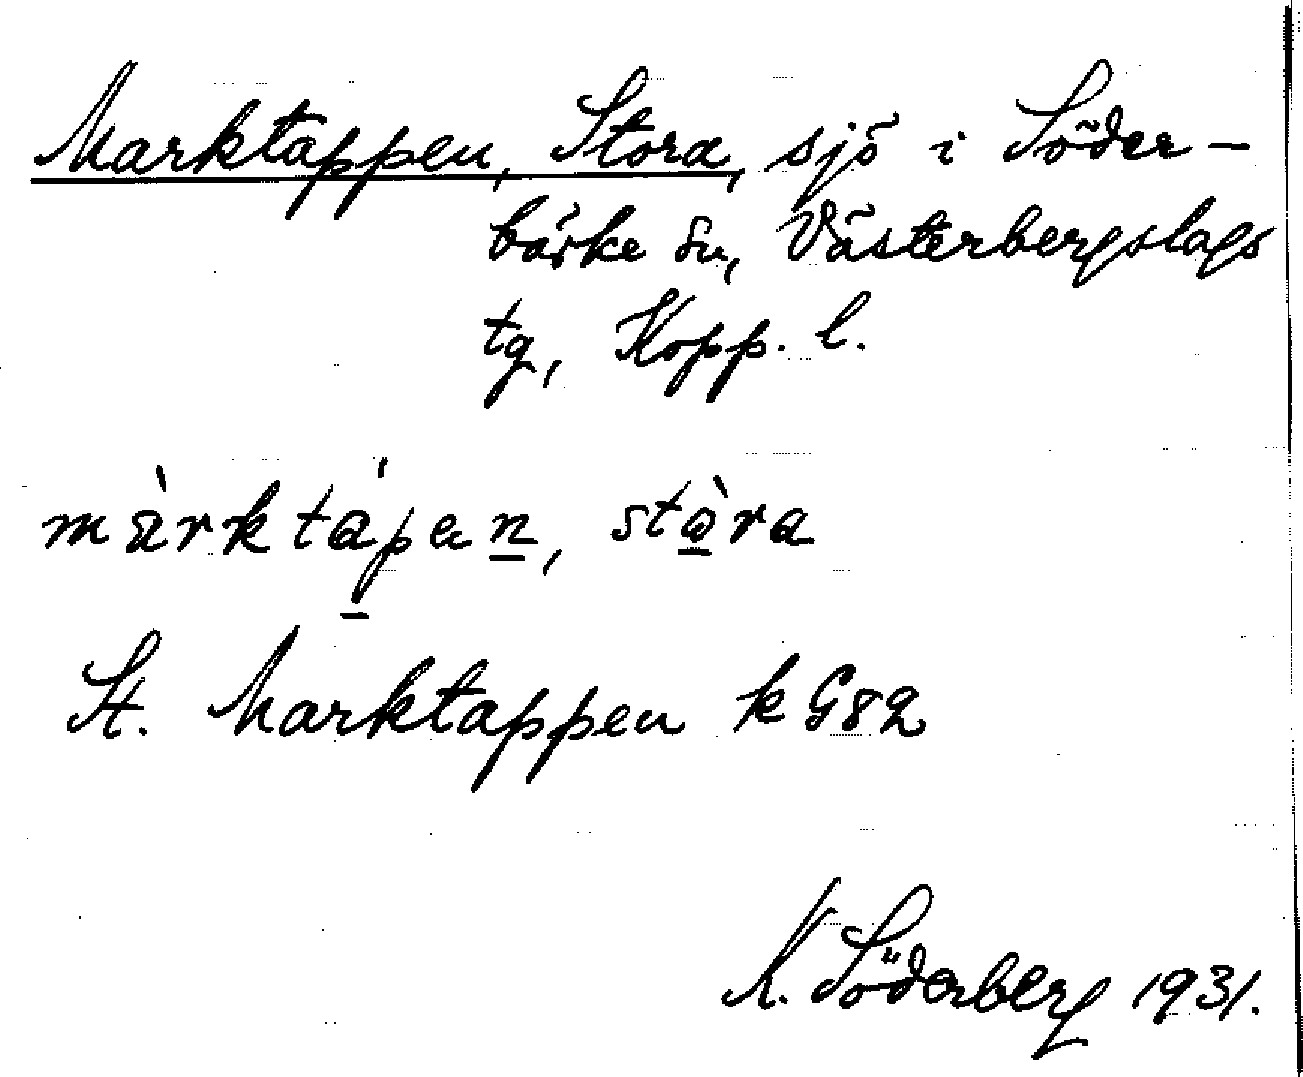 Marktappen, Stora, sjö i Söder-
bärke sn, Västerbergslags
tg, Kopp. l.
màrktápen, stòra
St. Marktappen k G82
N. Söderberg 1931.